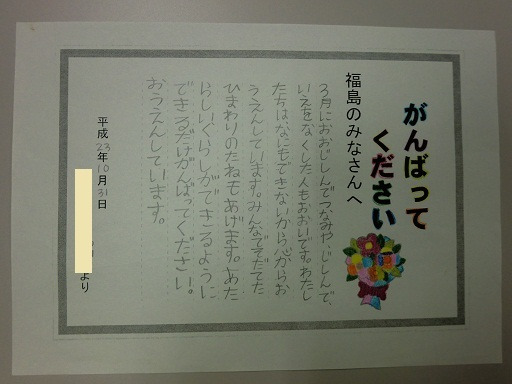 がんばって
ください
福島のみなさんへ
3月におおじしんでつなみや、じしんで、
いえをなくした人もおおいです。わたし
たちは、なにもできないから心からお
うえんしています。みんなでそだてた
ひまわりのたねもあげます。あた
らしいくらしができるように
できるだけがんばってください。
おうえんしています。
平成23年10月31日
より